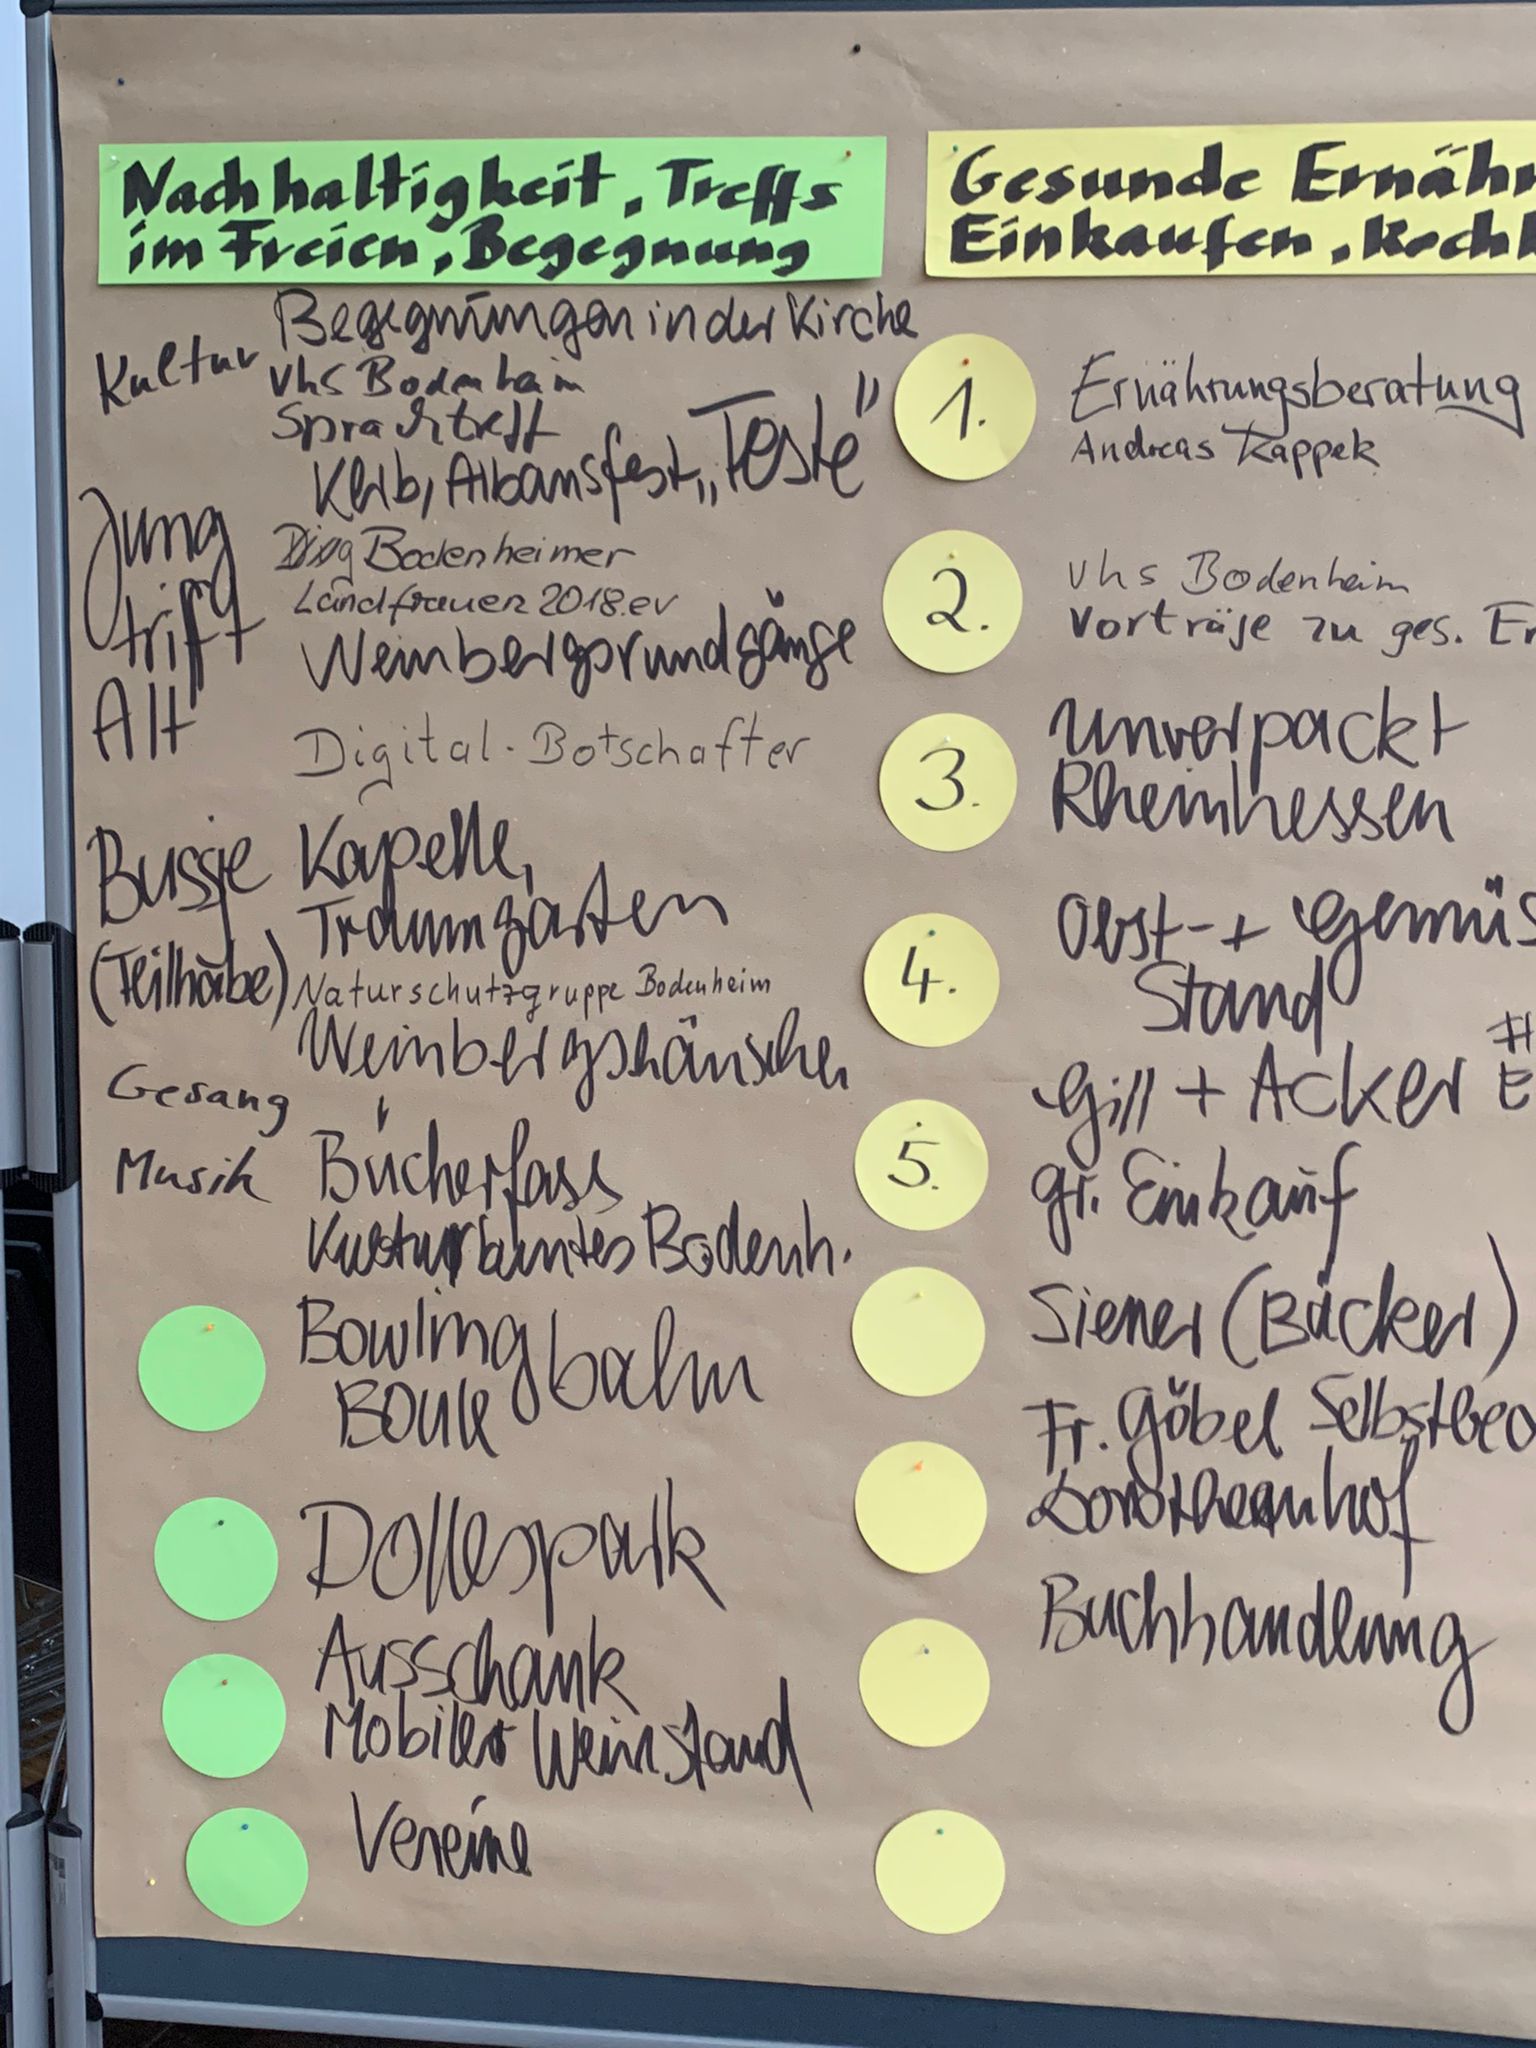 Nachhaltigkeit, Treffs
im Freien, Begegnung
Kultur
Begegnungen in der Kirche
vhs Bodenheim
Sprachtreff
Kerb, Albansfest, „Feste"
Jung
trifft
Alt
Bodenheimer
Landfrauen 2018.ev
Weinbergsrundgänge
Digital-Botschafter
Bussje
(Teilhabe)
Kapelle,
Traumgarten
Naturschutzgruppe Bodenheim
Weinbergshäuschen
Gesang
Musik
Bücherfass
Kulturbuntes Bodenh.
Bowlingbahn
Boule
Dollespark
Ausschank
Mobiler Weinstand
Vereine
Gesunde Ernähr
Einkaufen, Koch
1.
Ernährungsberatung
Andreas Kappek
2.
vhs Bodenheim
Vorträge zu ges. Er
3.
Unverpackt
Rheinhessen
4.
Obst- + Gemüs
Stand
5.
Gill + Acker
gr. Einkauf
Siener (Bäcker)
Fr. Göbel Selbstbed
Dorotheenhof
Buchhandlung